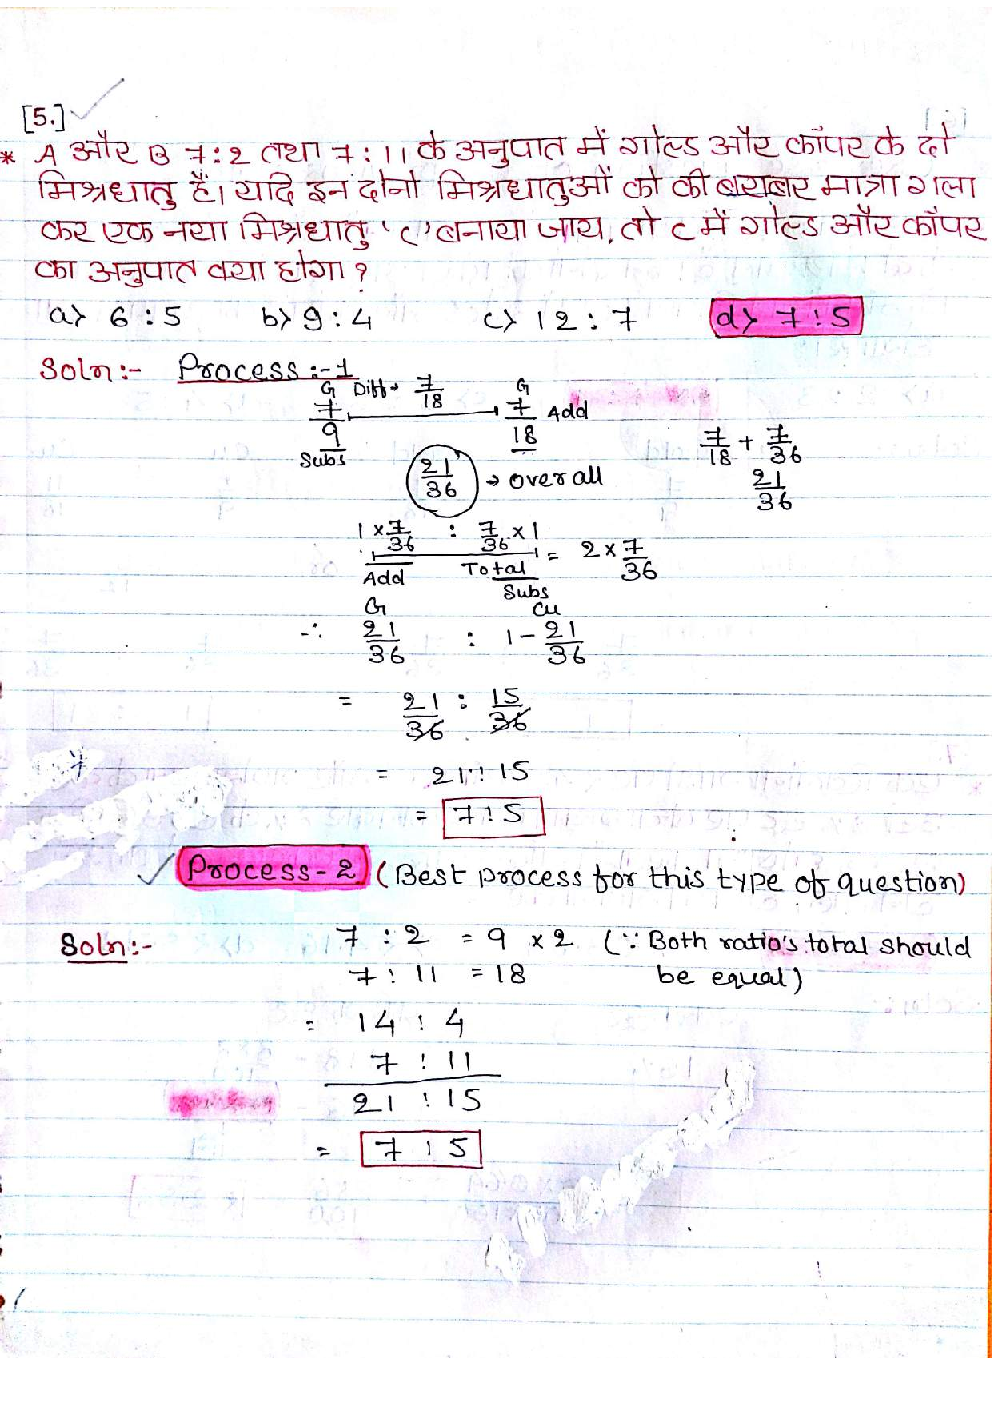 [5.]
* A और B 7:2 तथा 7:11 के अनुपात में गोल्ड और कॉपर के दो
मिश्रधातु हैं। यदि इन दोनो मिश्रधातुओं को की बराबर मात्रा गला
कर एक नया मिश्रधातु 'C' बनाया जाय, तो C में गोल्ड और कॉपर
का अनुपात क्या होगा ?
a> 6 : 5 b> 9 : 4 c> 12 : 7 d> 7 : 5
Soln:- Process:-1
G Diff→ 7/18 G
7/9 7/18 Add
Subs
21/36 → overall
7/18 + 7/36
21/36
1 × 7/36 : 7/36 × 1
Add Total = 2 × 7/36
Subs
G Cu
∴ 21/36 : 1 - 21/36
= 21/36 : 15/36
= 21 : 15
= 7 : 5
Process-2 (Best process for this type of question)
Soln:- 7 : 2 = 9 × 2 (∵ Both ratio's total should
7 : 11 = 18 be equal)
= 14 : 4
7 : 11
21 : 15
= 7 : 5